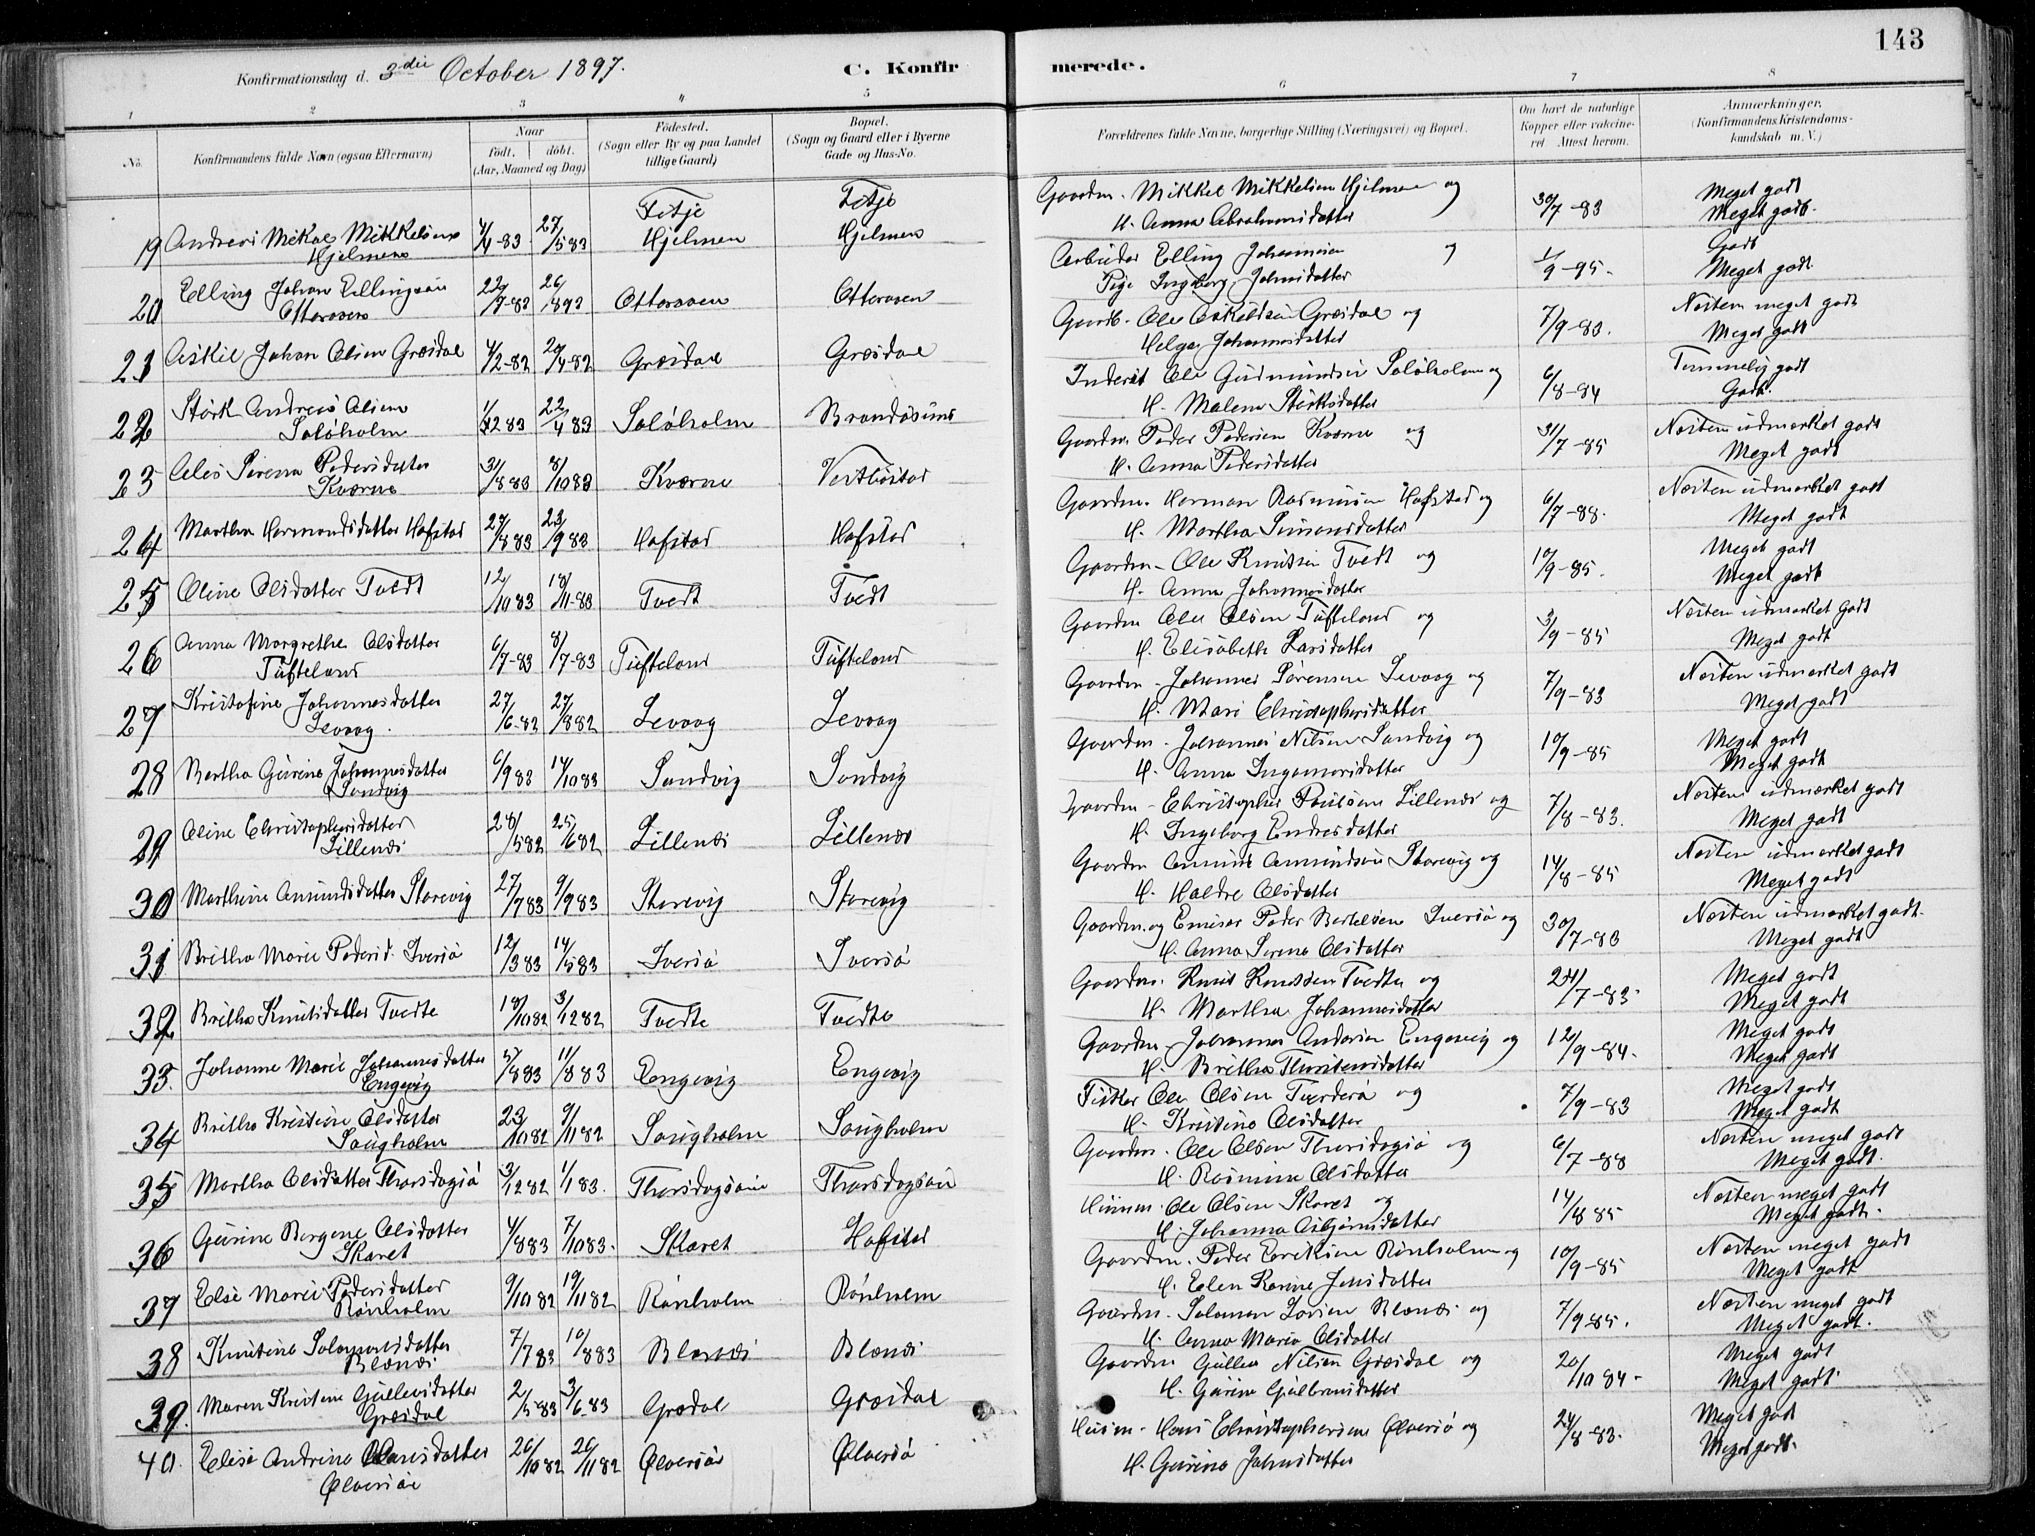 143
Konfirmationsdag d. 3die October 1897.
C. Konfirmerede.
1 2 3 4 5 6 7 8
No.
Konfirmandens fulde Navn (ogsaa Efternavn)
Naar
født. døbt.
(Aar, Maaned og Dag)
Fødested.
(Sogn eller By og paa Landet
tillige Gaard)
Bopæl.
(Sogn og Gaard eller i Byerne
Gade og Hus-No.
Forældrenes fulde Navne, borgerlige Stilling (Næringsvei) og Bopæl.
Om havt de naturlige
Kopper eller vaccine-
ret. Attest herom.
Anmærkninger.
(Konfirmandens Kristendoms-
kundskab m. V.)
Fitje Fitje Gaardm. Mikkel Mikkelsen Hjelmen og 30/7-83 Meget godt
19 Andreas Mikal Mikkelsen 4/4-83 27/5 83 Hjelmen Hjelmen H. Anna Abrahamsdatter Meget godt.
Hjelmen
20 Elling Johan Ellingsen 26/1893 Otteraaen Otteraaen Arbeider Elling Johannesen og 1/9-95. Godt
Otteraaen Pige Ingeborg Johnsdatter Meget godt.
21 Askil Johan Olsen Græsdal 4/2-82 20/4-82 Græsdal Græsdal Gaardb. Ole Askildsen Græsdal og 7/9-83. Næsten meget godt
Helga Johannesdatter Meget godt
22 Størk Andreas Olsen 22/4 83 Soløholm Brandasund Inderst Ole Gudmundsen Soløholm og 6/8-84 Temmelig godt
Soløholm H. Malene Størksdatter Godt.
23 Serena Pedersdatter 31/8 83 8/10 83 Kværne Vestbøstad Gaardm. Peder Pedersen Kværne og 31/7-85 Næsten udmærket godt
Kværne H. Anna Pedersdatter Meget godt
24 Martha Hermandsdatter Hofstad 27/8 83 23/9 83 Hofstad Hofstad Gaardm. Herman Rasmusen Hofstad og 6/7-88. Næsten udmærket godt
H. Martha Simonsdatter Meget godt
25 Oline Olsdatter Tvedt 12/10 83 18/11-83 Tvedt Tvedt Gaardm. Ole Knutsen Tvedt og 10/9-85. Meget godt
H. Anna Johannesdatter Meget godt
26 Anna Margrethe Olsdatter 6/7-83 8/7-83 Tufteland Tufteland Gaardm Ole Olsen Tufteland og 3/9-85 Næsten udmærket godt
Tufteland H. Elisabeth Larsdatter Meget godt
27 Kristofine Johannesdatter 27/6-82 27/8 82 Sevaag Sevaag Gaardm. Johannes Sørensen Sevaag og 7/9-83 Næsten udmærket godt
Sevaag. H. Mari Christophersdatter Meget godt
28 Bertha Gurine Johannesdatter 6/9 83 14/10 83 Sandvig Sandvig Gaardm. Johannes Nilsen Sandvig og 10/9-85 Meget godt
Sandvig H. Anna Ingemarsdatter Meget godt
29 Oline Christophersdatter 28/5 82 25/6 82 Lillenæs Lillenæs Gaardm. Christopher Poulsen Lillenæs og 7/8-83. Næsten udmærket godt
Lillenæs H. Ingeborg Endresdatter Meget godt
30 Marthine Amundsdatter Storevig 27/7 83 9/9 83 Storevig Storevig Gaardm Amund Amundsen Storevig og 14/8-85 Næsten udmærket godt
H. Haldre Olsdatter Meget godt
31 Britha Marie Pedersd. Iversø 12/3 83 14/5 83 Iversø Iversø Gaardm. og Emisær Peder Bertelsen Iversø og 30/7-83 Næsten udmærket godt.
H. Anna Serena Olsdatter Meget godt
32 Britha Knutsdatter Tvedte 18/10 82 3/12 82 Tvedte Tvedte Gaardm. Knut Knutsen Tvedte og 24/7-83. Meget godt
H. Martha Johannesdatter Meget godt
33. Johanne Marie Johannesdatter 5/8 83 11/8 83 Engevig Engevig Gaardm. Johannes Andersen Engevig og 12/9-84. Meget godt
Engevig H. Britha Thorsteinsdatter Meget godt
34 Britha Kristine Olsdatter 23/10 82 9/11 82 Saugholm Saugholm Ole Olsen og 7/9-83 Meget godt
Saugholm H. Kristine Olsdatter Meget godt
35 Martha Olsdatter Thorsdagsø 3/12 82 1/1 83. Thorsdagsøie Thorsdagsøi Gaardm. Ole Olsen Thorsdagsø og 6/7-88 Næsten meget godt
H. Rasmine Olsdatter Meget godt.
36 Gurine Bergene Olsdatter 4/8 83 7/10 83. Skaret Hofstad Husm. Ole Olsen Skaret og 14/8 85 Næsten meget godt
Skaret H. Johanna Asbjørnsdatter Meget godt.
37 Else Marie Pedersdatter 9/10 82 19/11 82 Rønholm Rønholm Gaardm. Peder Eriksen Rønholm og 10/9-85 Næsten meget godt
Rønholm H. Elen Karine Jensdatter Meget godt
38 Knutine Salomonsdatter 7/7 83 10/8 83 Blænæs Blænæs Gaardm. Salomon Blænæs og 7/9-85. Næsten meget godt
Blænæs H. Anna Maria Olsdatter Meget godt.
39. Maren Kristine Gullersdatter 2/5 83 3/6-83 Grædal Græsdal Gaardm Guller Nilsen Græsdal og 20/10 84- Meget godt
Græsdal H. Gurine Gulbransdatter Meget godt.
40. Elise Andrine Hansdatter 26/10 82 26/11 82 Ølversø Ølversø Husm. Hans Christophersen Ølversø og 24/8-83. Meget godt
Ølversøe H. Gurine Johnsdatter Meget godt.